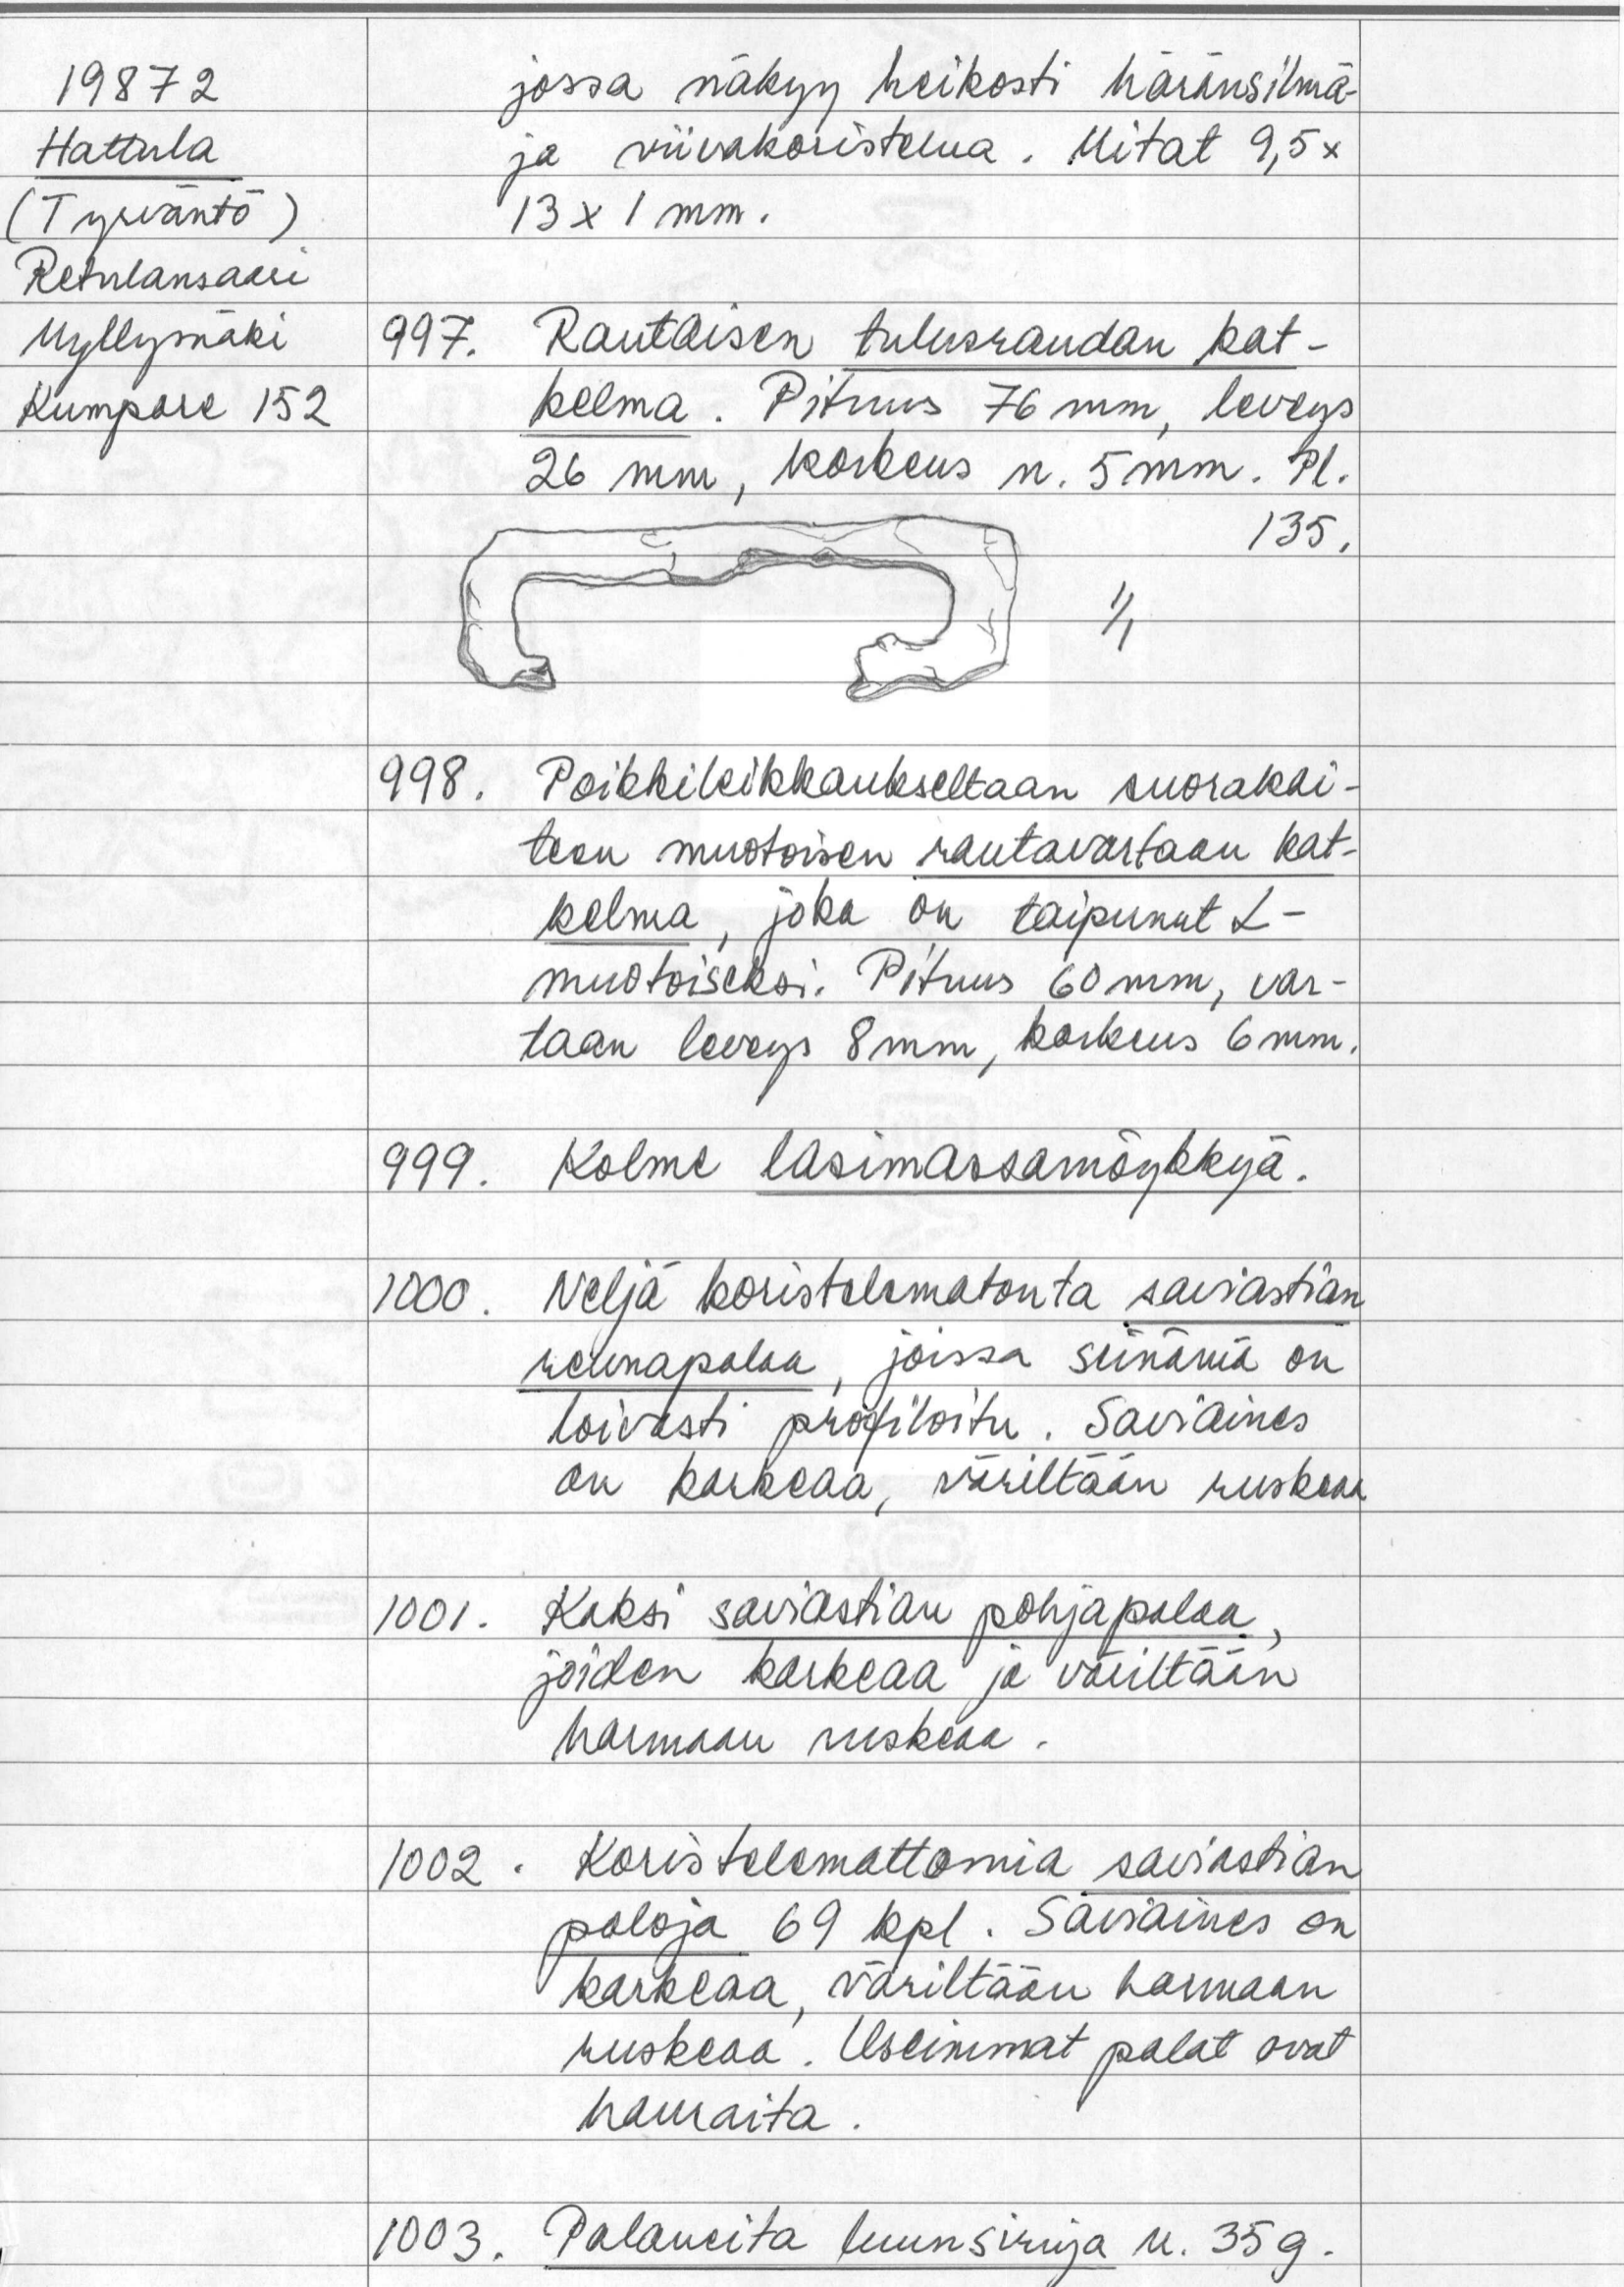 19872
Hattula
(Tyrväntö)
Retulansaari
Myllymäki
Kumpare 152
jossa näkyy heikosti häränsilmä-
ja viivakoristelua. Mitat 9,5 x
13 x 1 mm.
997. Rautaisen tulusraudan kat-
kelma. Pituus 76 mm, leveys
26 mm, korkeus n. 5 mm. Pl.
135.
1/1
998. Poikkileikkaukseltaan suorakai-
teen muotoisen rautavartaan kat-
kelma, joka on taipunut L-
muotoiseksi. Pituus 60 mm, var-
taan leveys 8 mm, korkeus 6 mm.
999. Kolme lasimassamöykkyä.
1000. Neljä koristelematonta saviastian
reunapalaa, joissa seinämä on
loivasti profiloitu. Saviaines
on karkeaa, väriltään ruskeaa
1001. Kaksi saviastian pohjapalaa,
joiden karkeaa ja väriltään
harmaan ruskeaa.
1002. Koristelemattomia saviastian
paloja 69 kpl. Saviaines on
karkeaa, väriltään harmaan
ruskeaa. Useimmat palat ovat
hauraita.
1003. Palaneita luunsiruja n. 35 g.